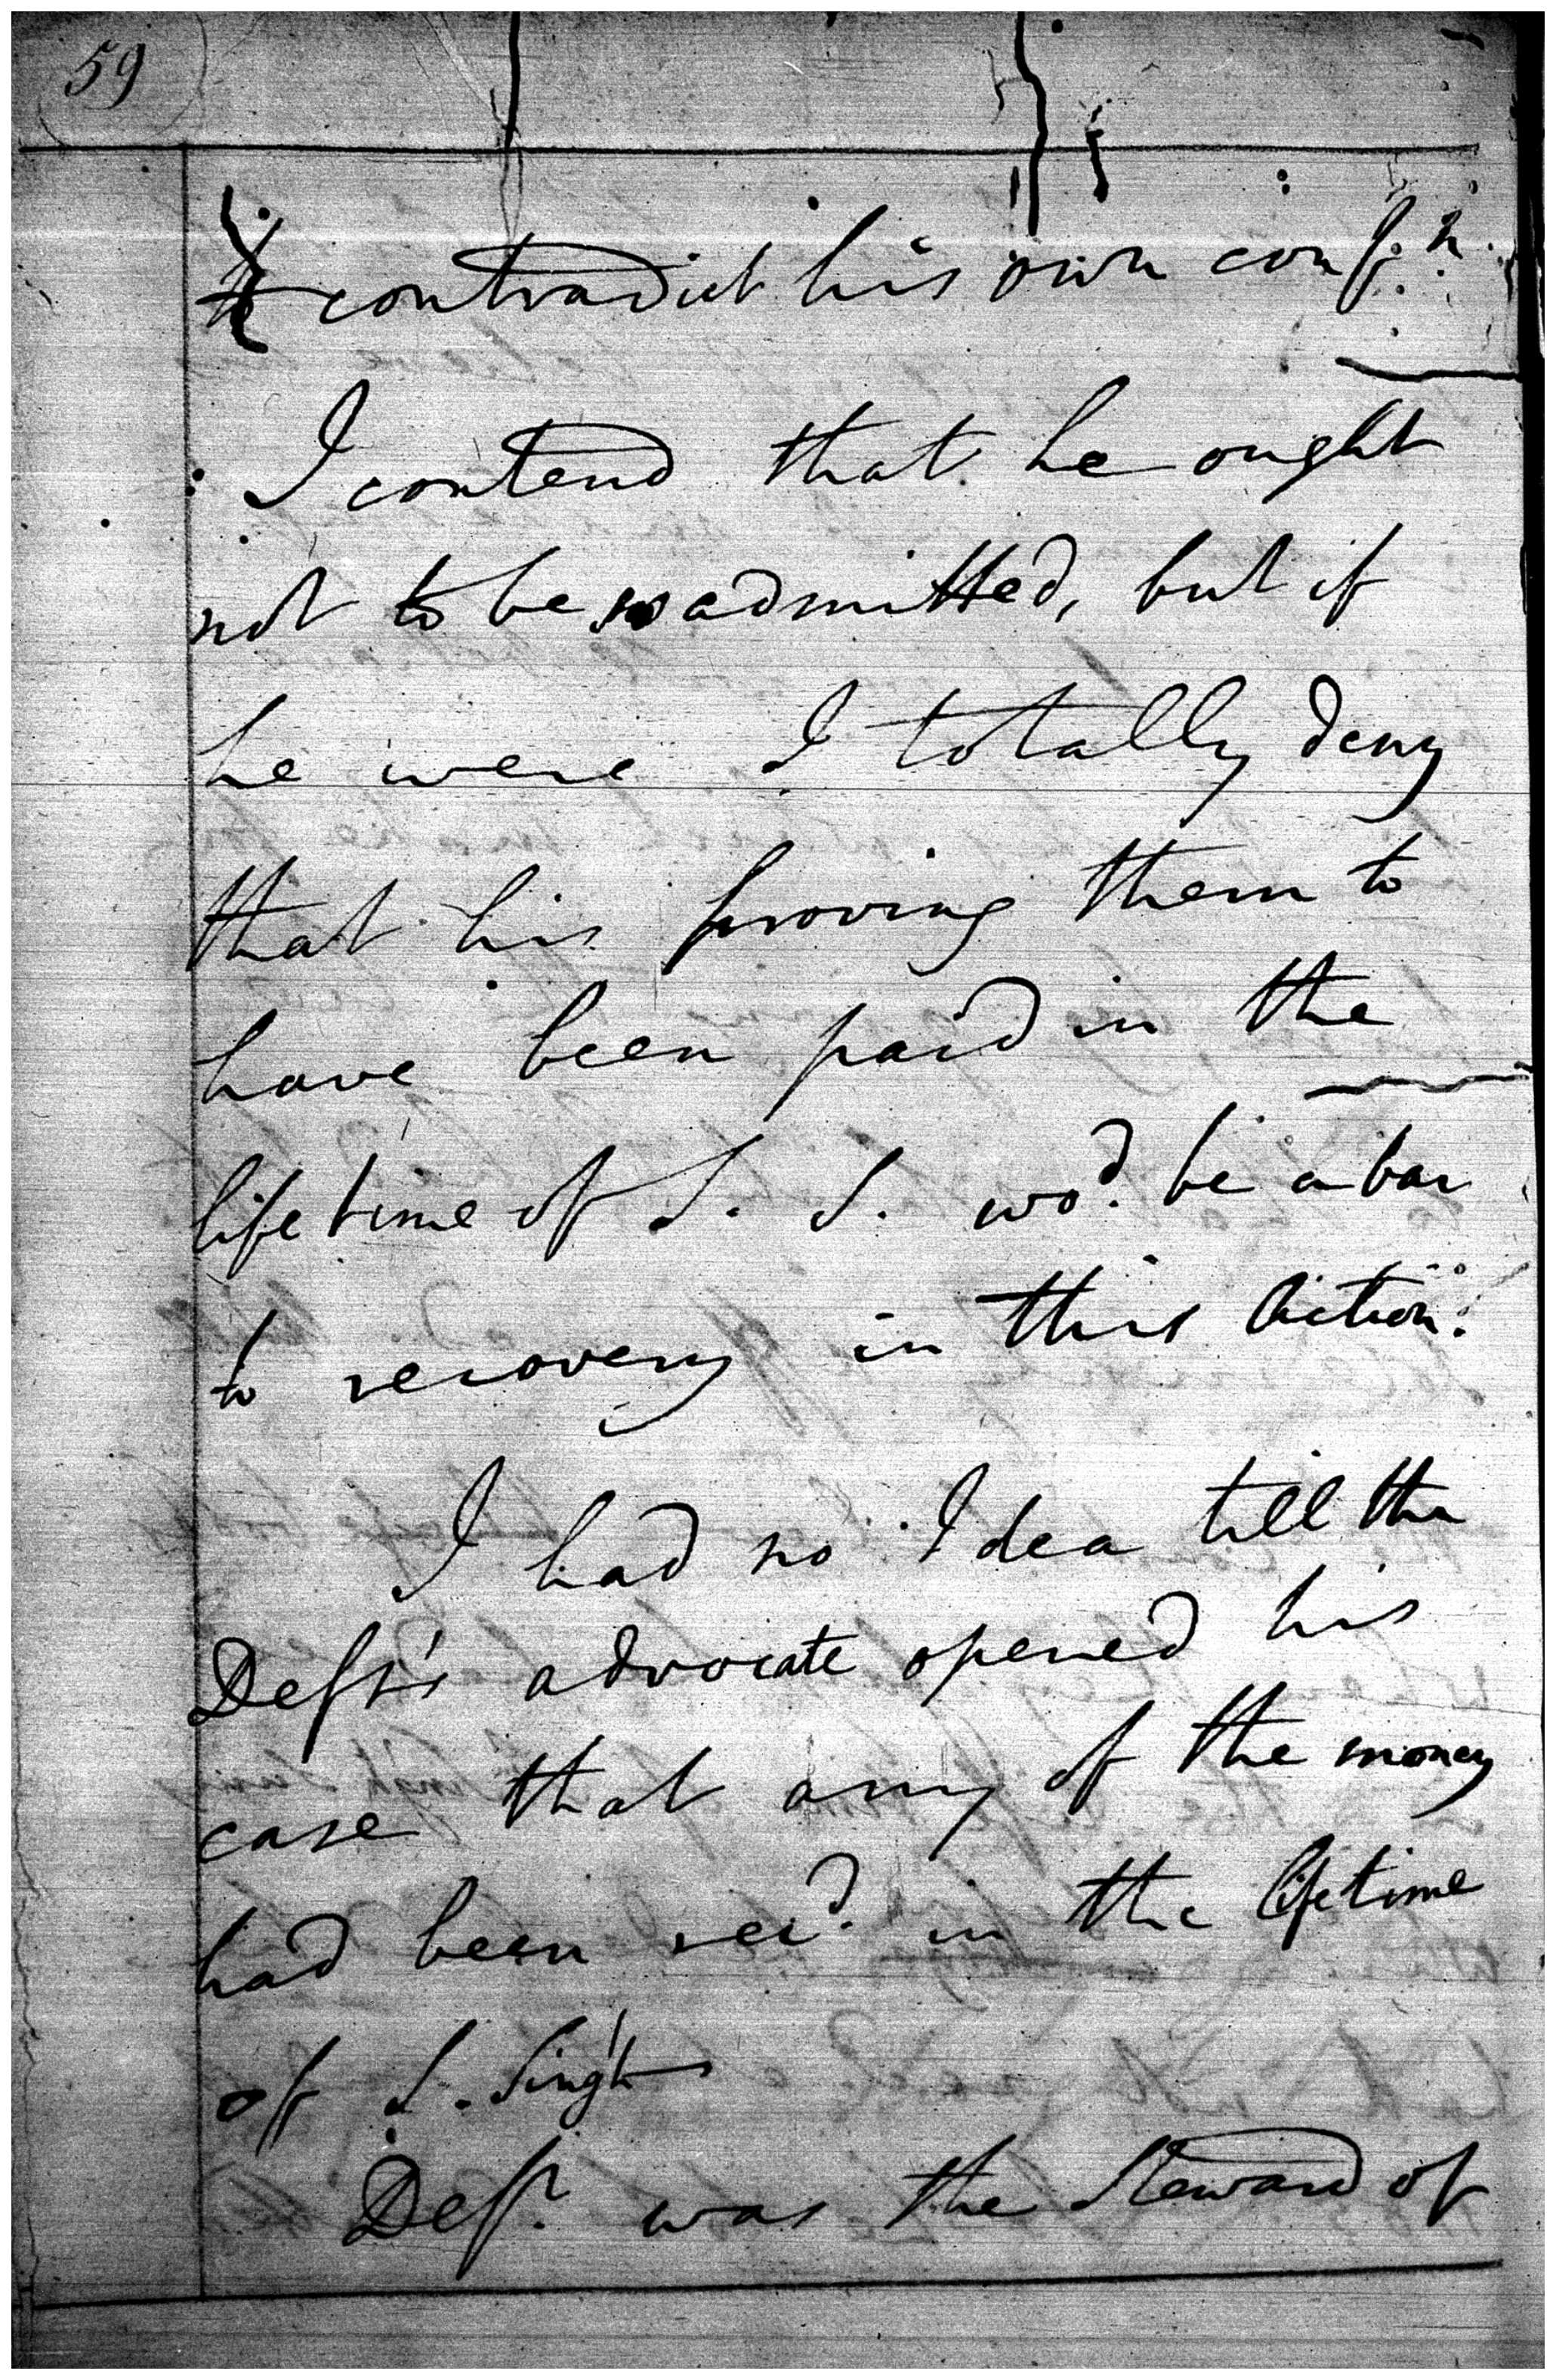 59
to contradict his own conf.n
I contend that he ought
not to be so admitted, but if
he were I totally deny
that his proving them to
have been paid in the
life time of S. S. wod. be a bar
to recovery in this Action.
I had no Idea till the
Deft's advocate opened his
case that any of the money
had been recd. in the lifetime
of S. Singh
Deft. was the Steward of